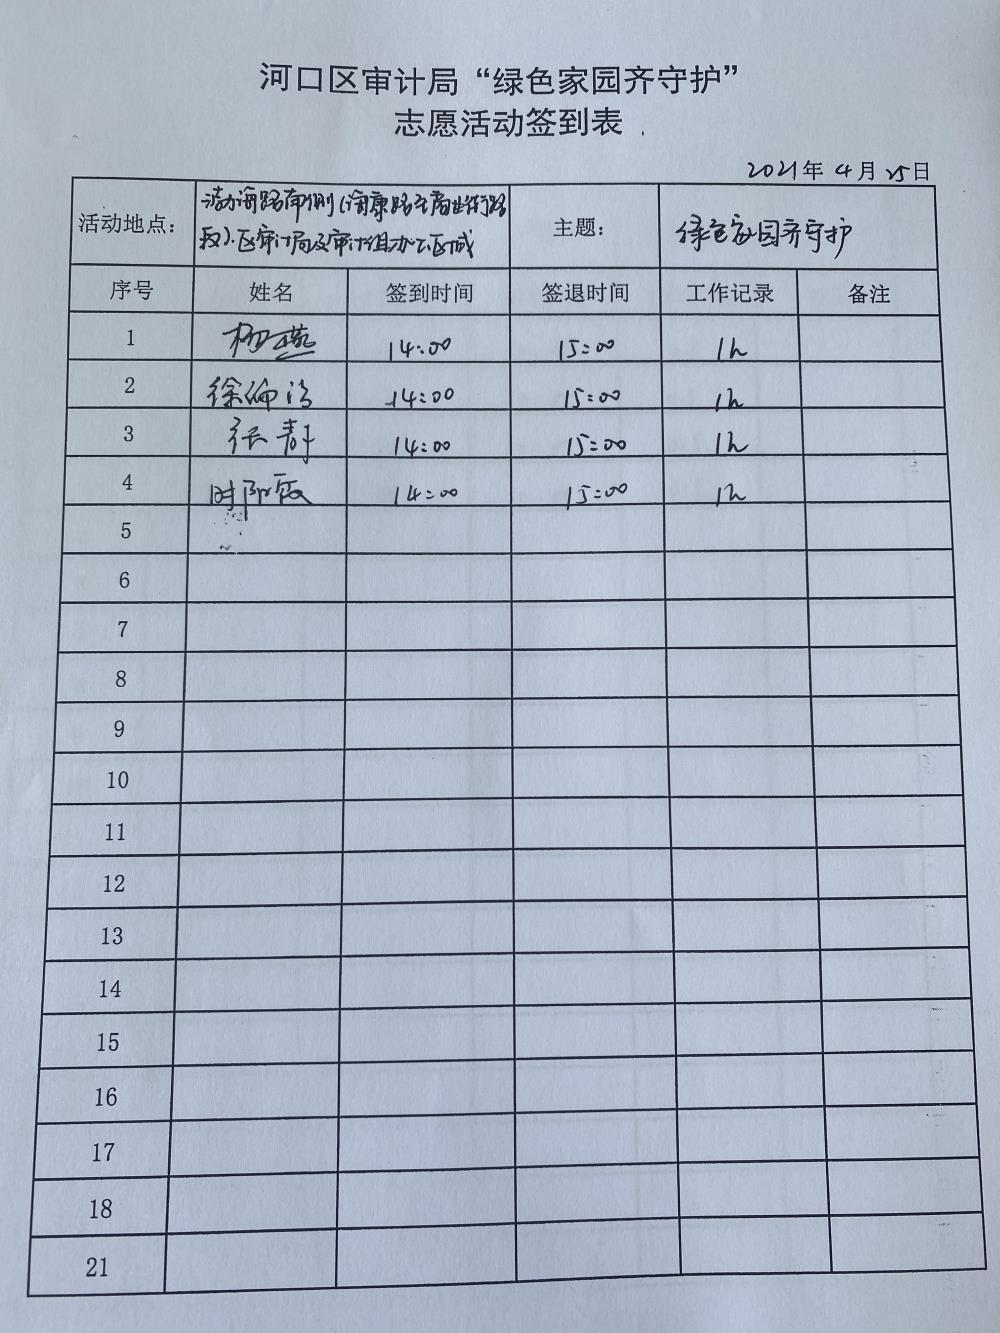 河口区审计局“绿色家园齐守护”
志愿活动签到表
2021年4月25日
活动地点： 渤海路南侧(海康路至商业街路
段).区审计局及审计组办公区域
主题： 绿色家园齐守护
序号 姓名 签到时间 签退时间 工作记录 备注
1 杨燕 14:00 15:00 1h
2 徐 14:00 15:00 1h
3 张青 14:00 15:00 1h
4 时 霞 14:00 15:00 1h
5
6
7
8
9
10
11
12
13
14
15
16
17
18
21